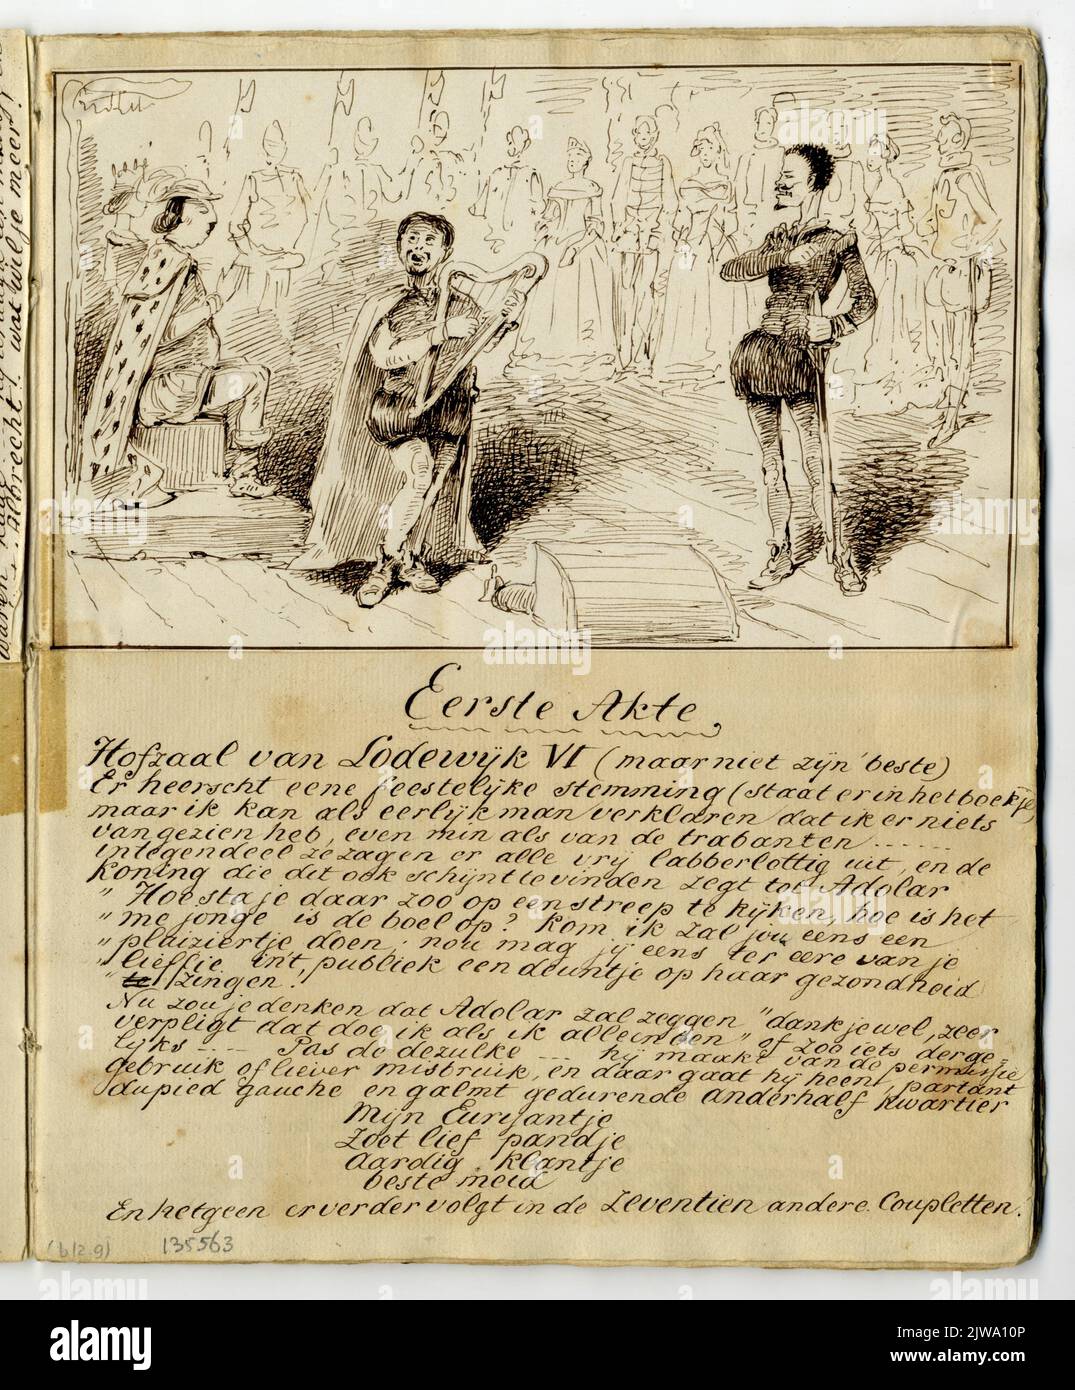 waren
Albrecht! wat wil je meer!
Eerste Akte,
Hofzaal van Lodewijk VI (maar niet zijn beste)
Er heerscht eene feestelijke stemming (staat er in het boekje,
maar ik kan als eerlijk man verklaren dat ik er niets
van gezien heb, even min als van de trabanten ......
integendeel ze zagen er alle vrij labberlottig uit, en de
Koning die dit ook schijnt te vinden zegt tot Adolar
„ Hoe sta je daar zoo op een streep te kijken, hoe is het
„ me jonge is de boel op? Kom ik zal jou eens een
„ plaiziertje doen; nou mag jij eens ter eere van je
„ lieffie in't publiek een deuntje op haar gezondheid
„ te zingen.
Nu zou je denken dat Adolar zal zeggen "dank je wel, zeer
verpligt dat doe ik als ik alleen ben" of zoo iets derge=
lijks ... Pas de dezulke ... hij maakt van de permissie
gebruik of liever misbruik, en daar gaat hij heen, partant
du pied gauche en galmt gedurende anderhalf kwartier
Mijn Euryantje
Zoet lief pandje
Aardig klantje
beste meid
En hetgeen er verder volgt in de Zeventien andere Coupletten.
(blz. 9) 135563
alamy
alamy
Image ID: 2JWA10P
www.alamy.com